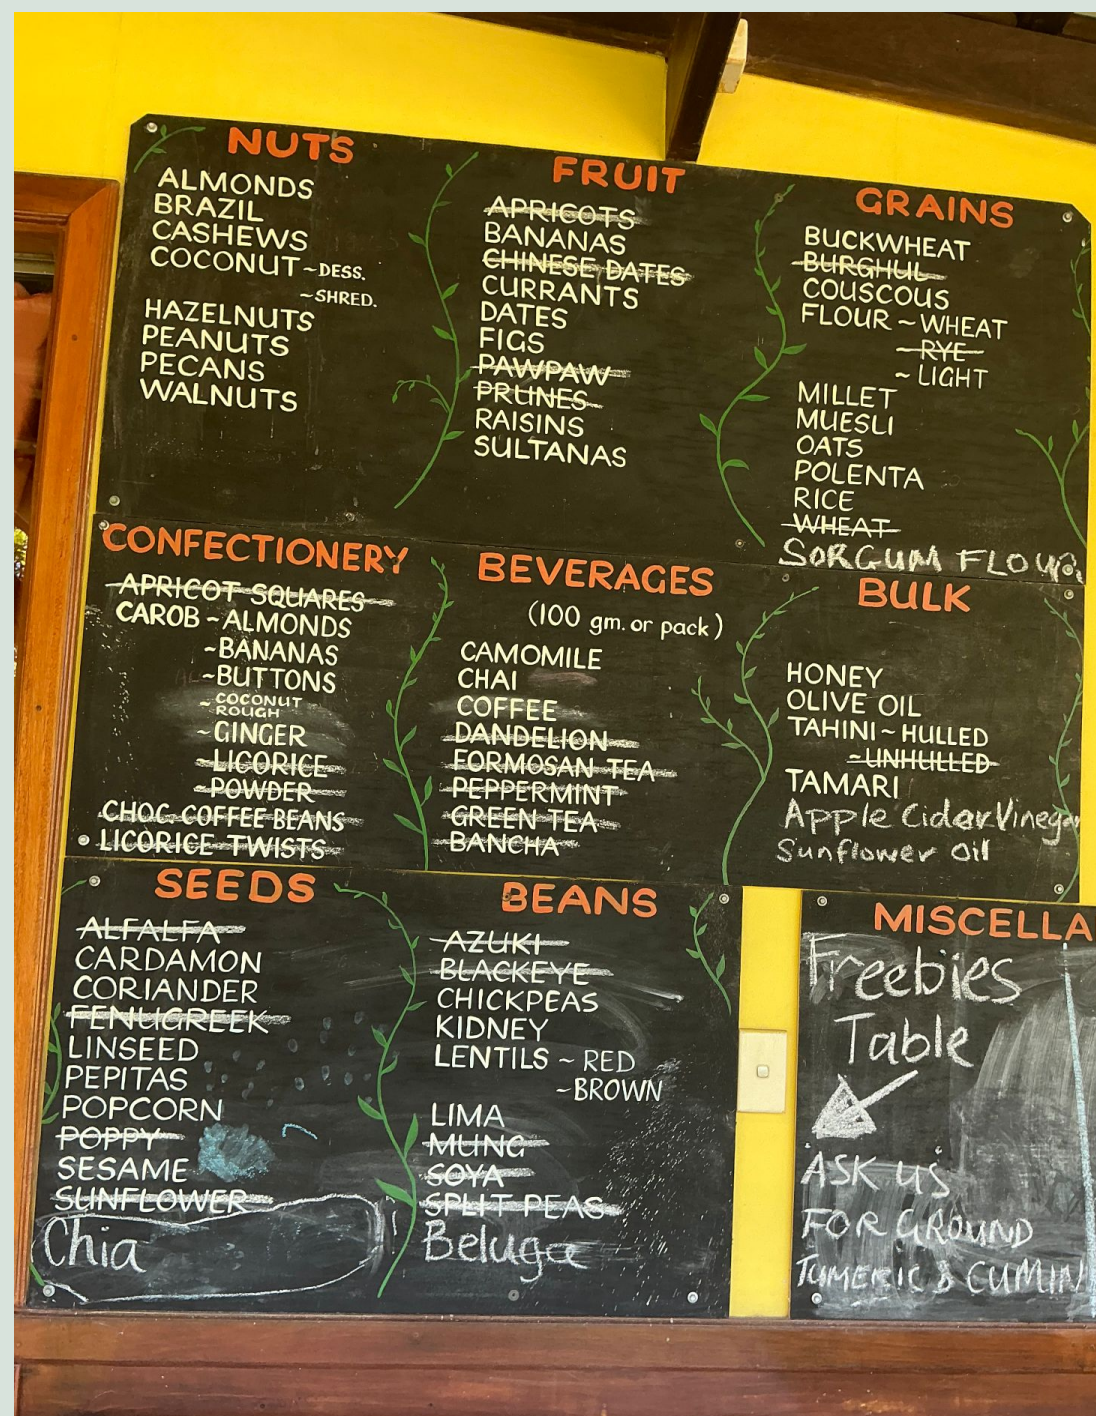 NUTS
ALMONDS
BRAZIL
CASHEWS
COCONUT ~ DESS.
~ SHRED.
HAZELNUTS
PEANUTS
PECANS
WALNUTS
FRUIT
APRICOTS
BANANAS
CHINESE DATES
CURRANTS
DATES
FIGS
PAWPAW
PRUNES
RAISINS
SULTANAS
GRAINS
BUCKWHEAT
BURGHUL
COUSCOUS
FLOUR ~ WHEAT
~ RYE
~ LIGHT
MILLET
MUESLI
OATS
POLENTA
RICE
WHEAT
SORGUM FLOUR
CONFECTIONERY
APRICOT SQUARES
CAROB ~ ALMONDS
~ BANANAS
~ BUTTONS
~ COCONUT
ROUGH
~ GINGER
~ LICORICE
~ POWDER
CHOC COFFEE BEANS
LICORICE TWISTS
BEVERAGES
(100 gm. or pack)
CAMOMILE
CHAI
COFFEE
DANDELION
FORMOSAN TEA
PEPPERMINT
GREEN TEA
BANCHA
BULK
HONEY
OLIVE OIL
TAHINI ~ HULLED
~ UNHULLED
TAMARI
Apple Cider Vinegar
Sunflower Oil
SEEDS
ALFALFA
CARDAMON
CORIANDER
FENUGREEK
LINSEED
PEPITAS
POPCORN
POPPY
SESAME
SUNFLOWER
Chia
BEANS
AZUKI
BLACKEYE
CHICKPEAS
KIDNEY
LENTILS ~ RED
~ BROWN
LIMA
MUNG
SOYA
SPLIT PEAS
Beluga
MISCELLA
Freebies
Table
ASK US
FOR GROUND
TUMERIC & CUMIN